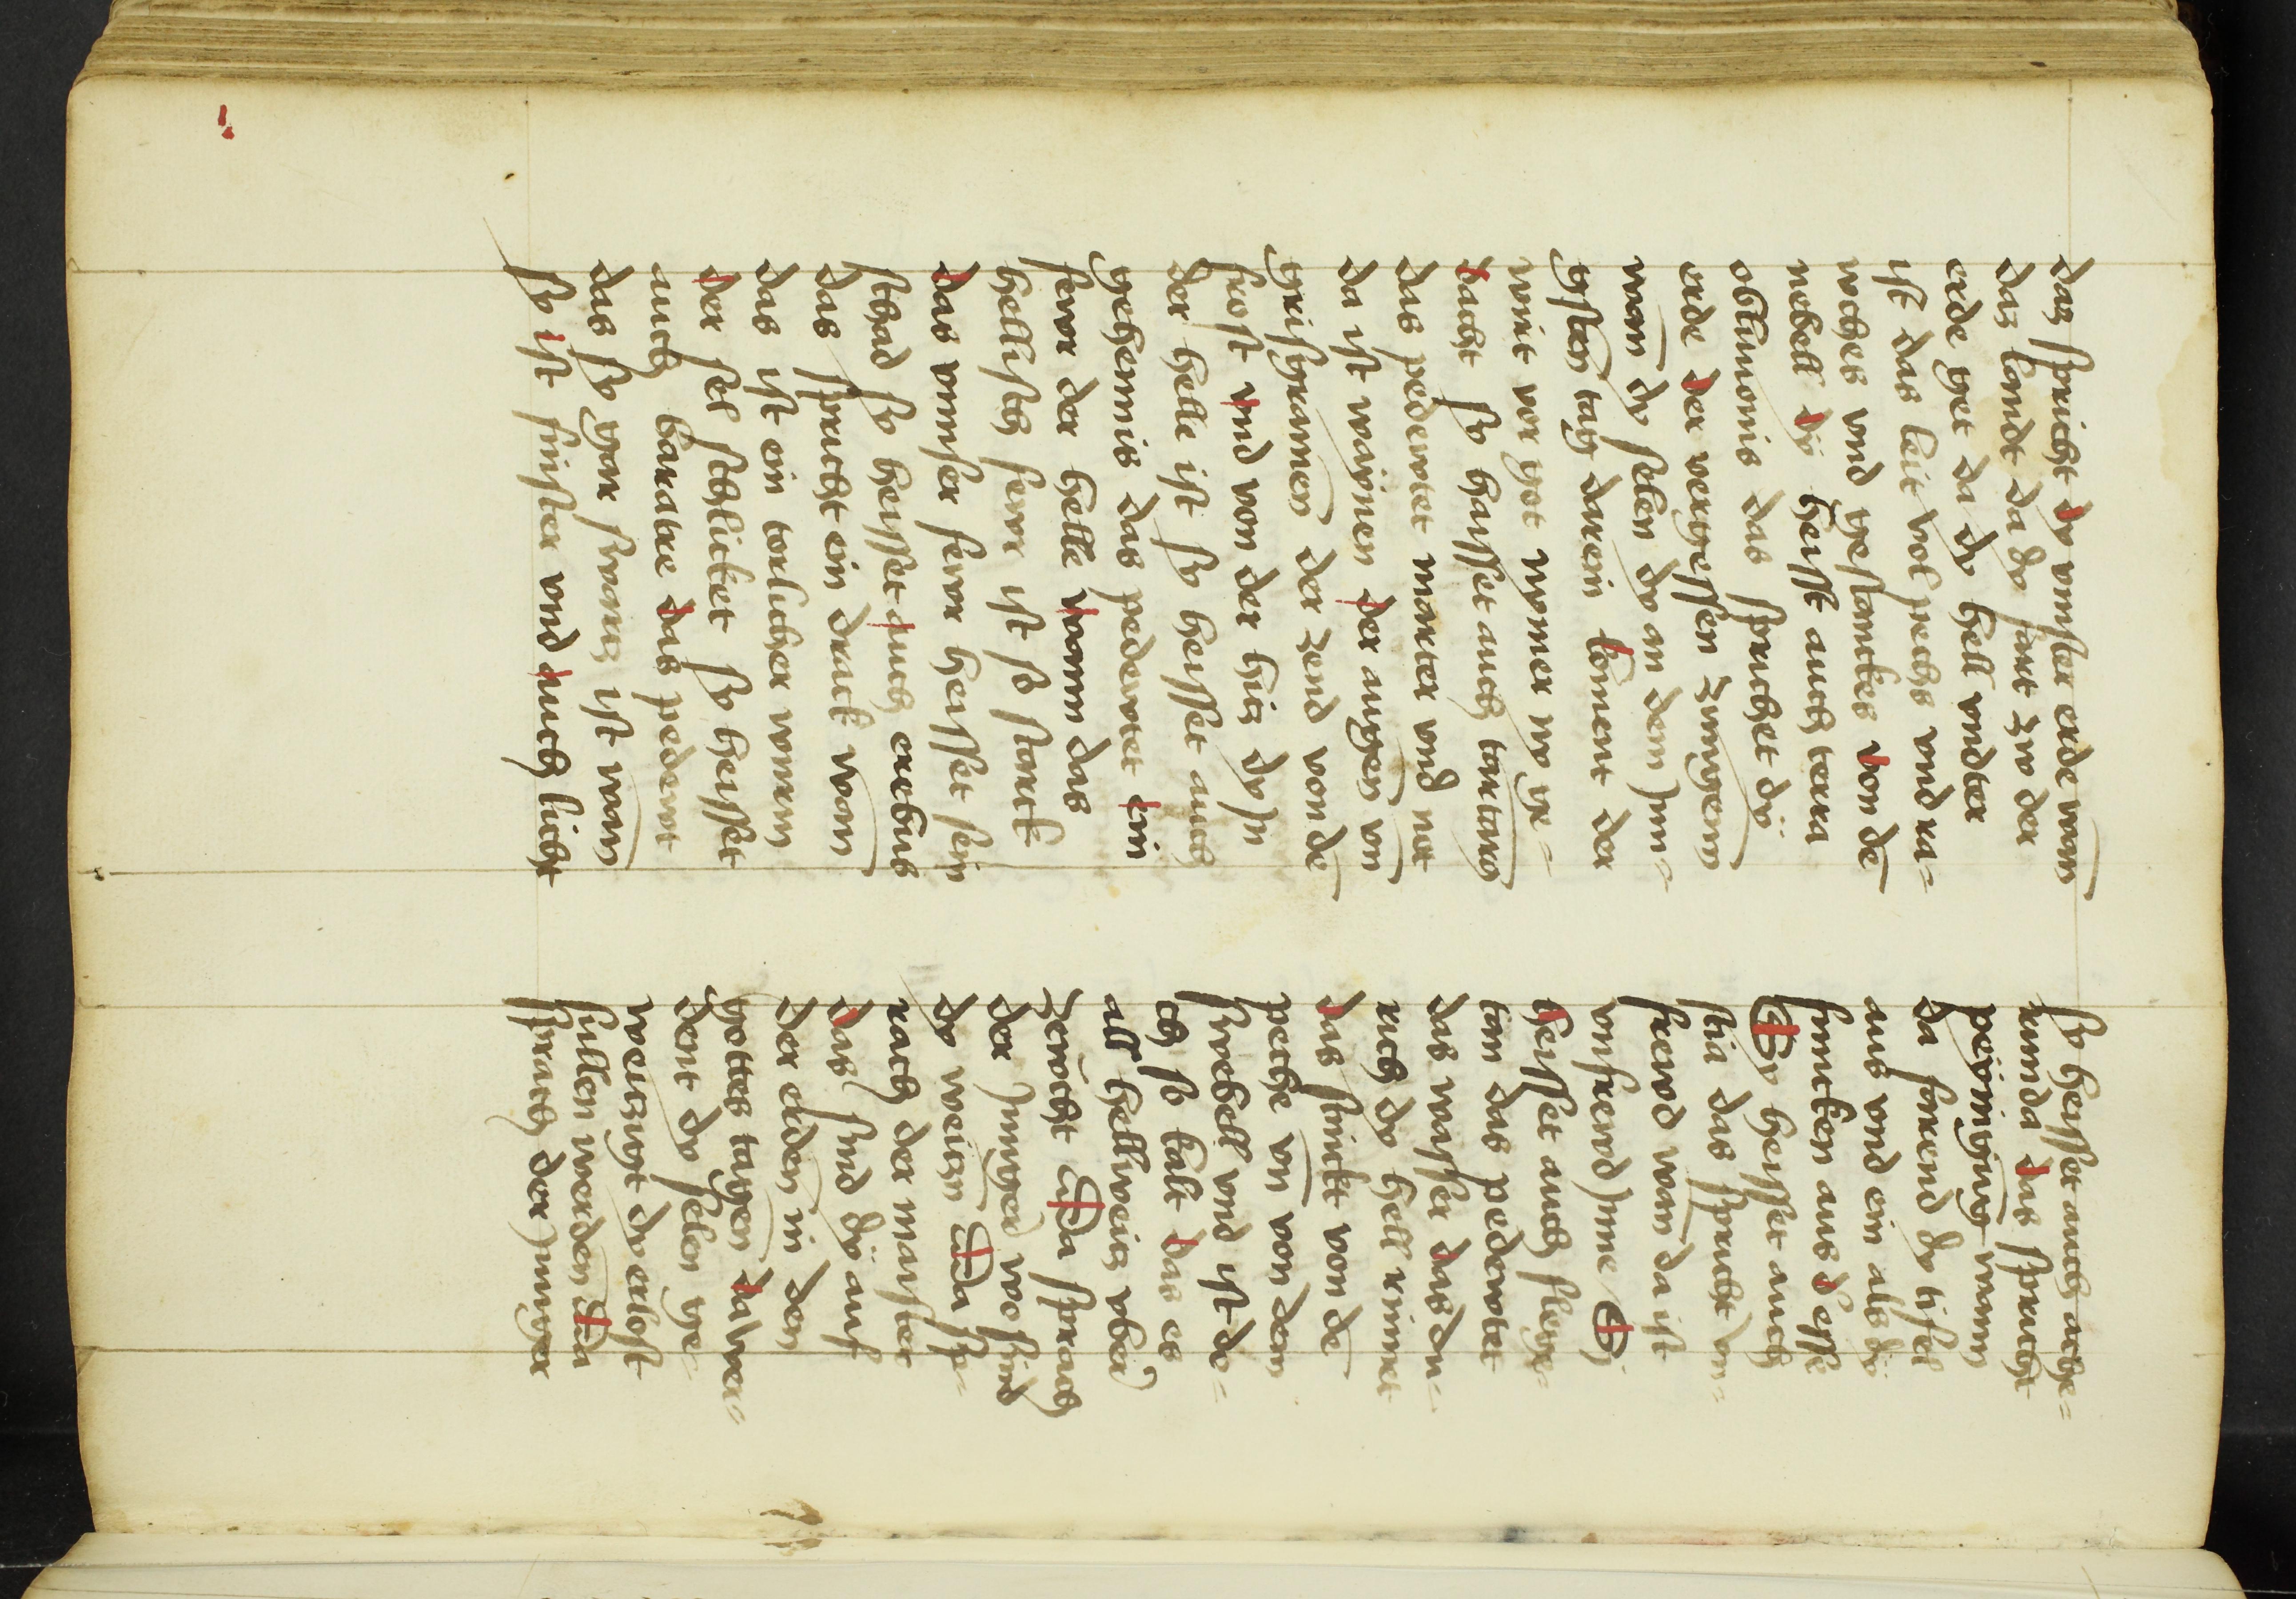 daz spricht dy vinster erde wan
daz landt da dy fart zw der
erde get da dy hell vndter
ist das leit vol pechs vnd ra-
wches vnd gestanckes von de
nebell dy heisst auch terra
obliuionis das sprichet dy
erde der vergessen zungem
wan dy selen dy an dem jun-
gsten tag darein koment der
wirt vor got nymer ny ge-
dacht sy haisset auch tartarus
das pedewtet marter vnd not
da ist waynen der augen vn
grisgramen der zend von de
frost vnd von der hitz dy jn
der helle ist sy heisset auch
gehennis das pedewtet ein
fewr der helle wann das
hellisch fewr ist so starck
das vnnser fewr heisset sein
schad sy heisset auch erebus
das spricht ein druck wan
das ist ein torlicher wurm
der sel schlicket sy heisset
auch baratre das pedewt
das sy gar swartz ist wan
sy ist finster vnd auch licht
sy heisset auch ache-
runda das spricht
peynigung wann
da farend dy tifel
aus vnd ein als dy
funcken aus d esse
Sy heisset auch
stia das spricht vn-
frewd wan da ist
vnfrewd jnne Sy
heisset auch flege-
ton das pedewtet
das wasser das du-
rich dy hell rinnet
das stinckt von de
peche vn von dem
swebell vnd ist de-
ch so kalt das es
all hellweitz vber
zewcht Da sprach
der junger wo sind
dy weitzn Da sp-
rach der maister
das sind dy auf
der erden in den
gottes tagen da wer-
dent dy selen ge-
weitzigt dy erlost
sullen werden Da
sprach der junger